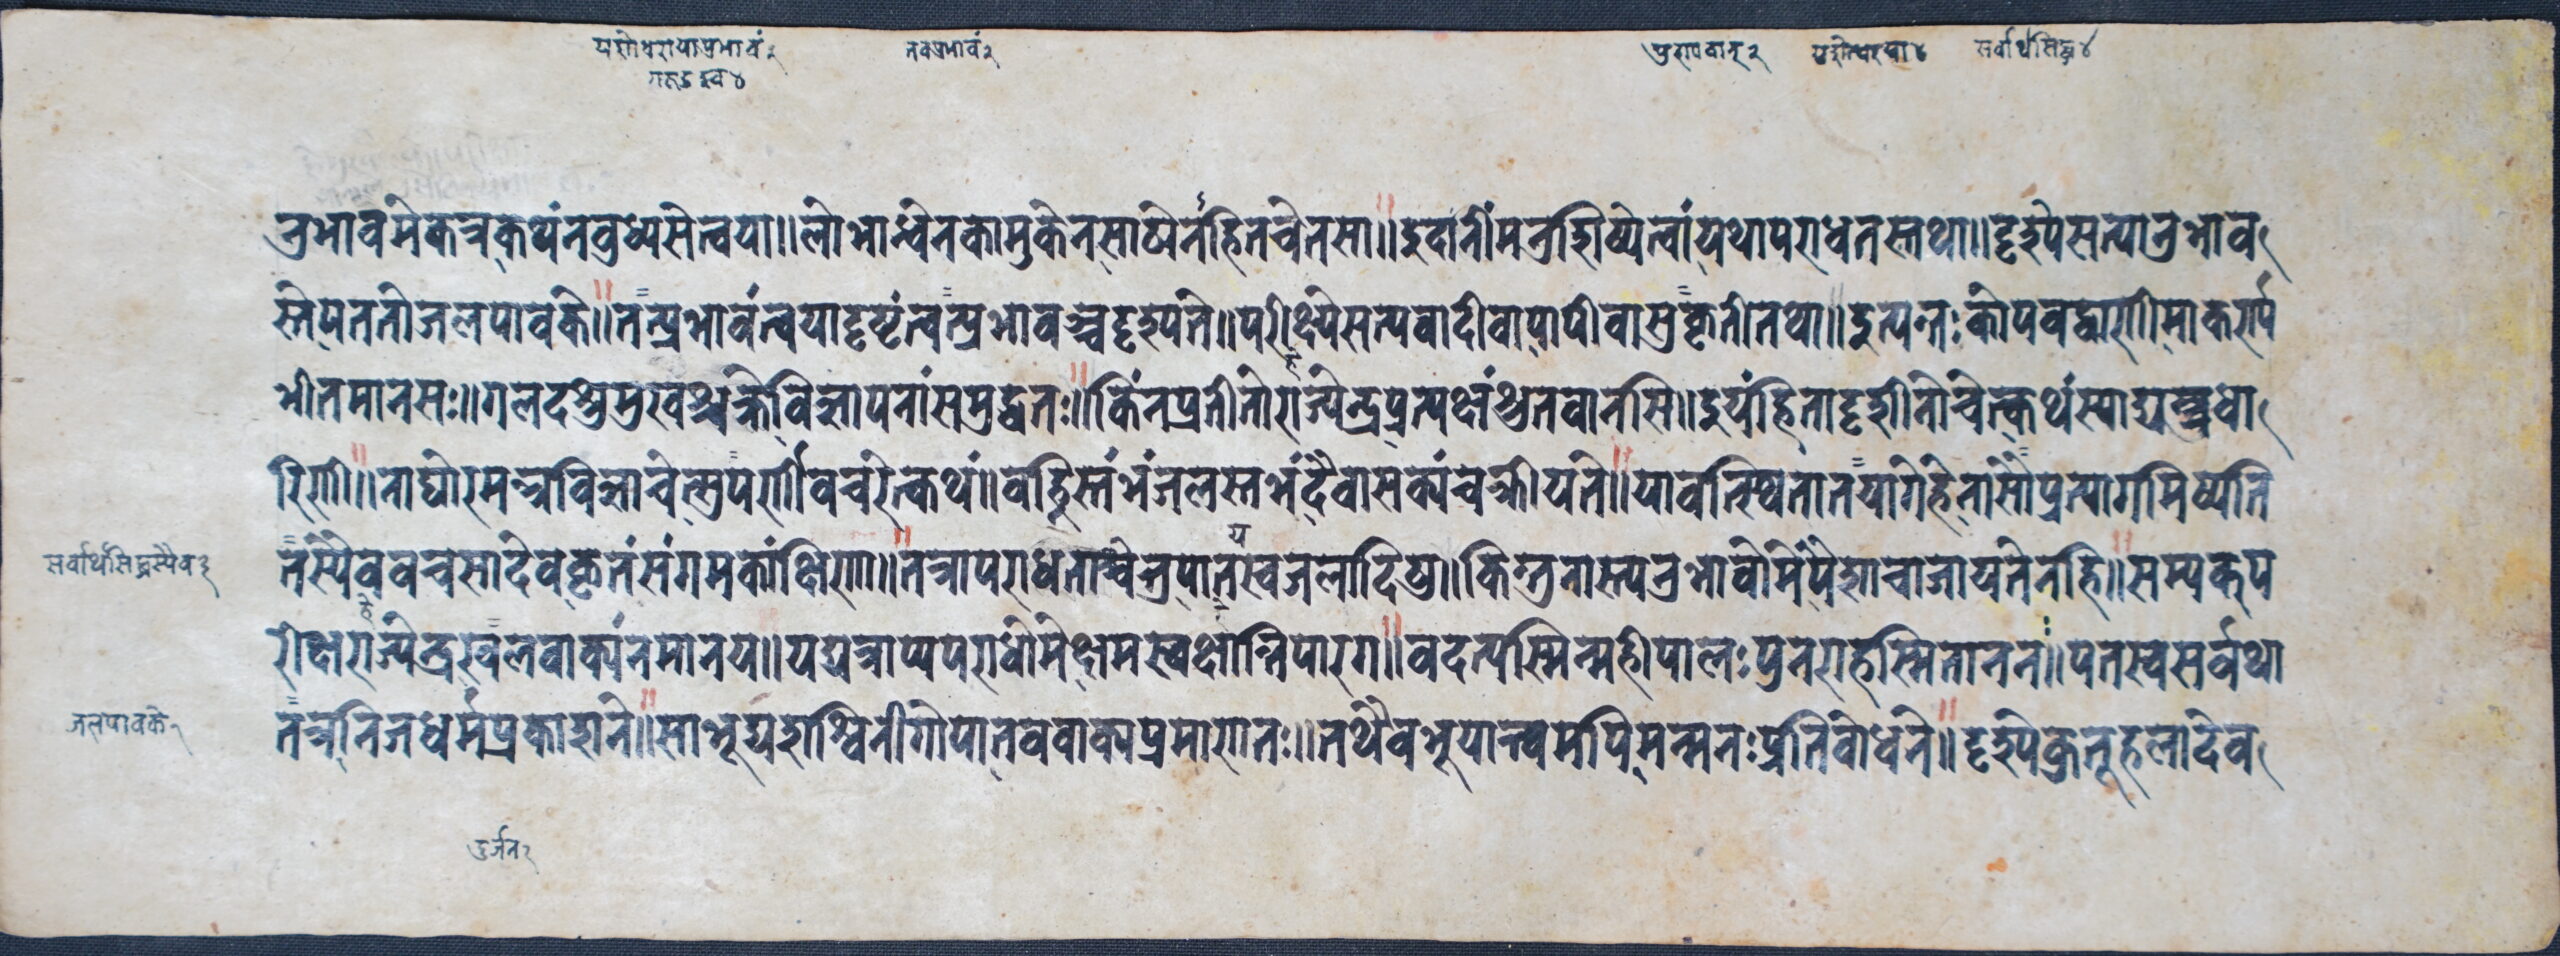 यशोधरायाप्रभावं२ तवप्रभावं२ पुरुषवान्२ यशोधरया४ सर्वार्थसिद्ध४
गरुडइव४
नुभावमेकत्रकथंनवुध्यसेत्वया॥लोभान्धेनकामुकेनसाठ्येर्नहितचेतसा॥इदानींमनुशिष्येत्वांयथापराधतस्तथा॥दृश्येसत्यानुभाव
स्तेपततोजलपावके॥तत्प्रभावंत्वयादृष्टंत्वत्प्रभावञ्चदृश्यते॥परीक्ष्येसत्यवादीवापापीवासुकृतीतथा॥इत्यन्तःकोपवद्धारुणीमाकर्ण्य
भीतमानसः॥गलदश्रुमुखश्चक्रेविज्ञापनांसमुद्धतः॥किंनप्रतीतोराज्येन्द्रप्रत्यक्षंश्रुतवानसि॥इयंहितादृशीनोचेत्कथंस्याद्यन्त्रधा
रिणी॥नाद्योरमन्त्रविज्ञाचेत्सुपर्णीवचरेत्कथं॥वह्निस्तंभंजलस्तंभंदैवासक्यंचक्रीयते॥यावत्स्थितातयागेहेतांसौप्रत्यागमिष्यति
तस्यैववचसादेवकृतंसंगमकांक्षिणा॥तत्रापराधताचेन्नुपातयस्वजलादिषु॥किन्तुनास्त्यनुभावोमेपैशाचाजायतेनहि॥सम्यक्प
रीक्षराज्येन्द्रखलवाक्यंनमानय॥यद्यत्राप्यपराधोमेक्षमस्वक्षान्तिपारग॥वदत्यस्मिन्महीपालःपुनराहस्मिताननः॥पतस्वसर्वथा
तत्रनिजधर्मप्रकाशने॥साभूद्यशश्विनीगोपातववाक्यप्रमाणतः॥तथैवभूयात्त्वमपिमन्मनःप्रतिवोधने॥दृश्येकुतूहलादेव
सर्वार्थसिद्धस्यैव३
जलपावके१
दुर्जन२